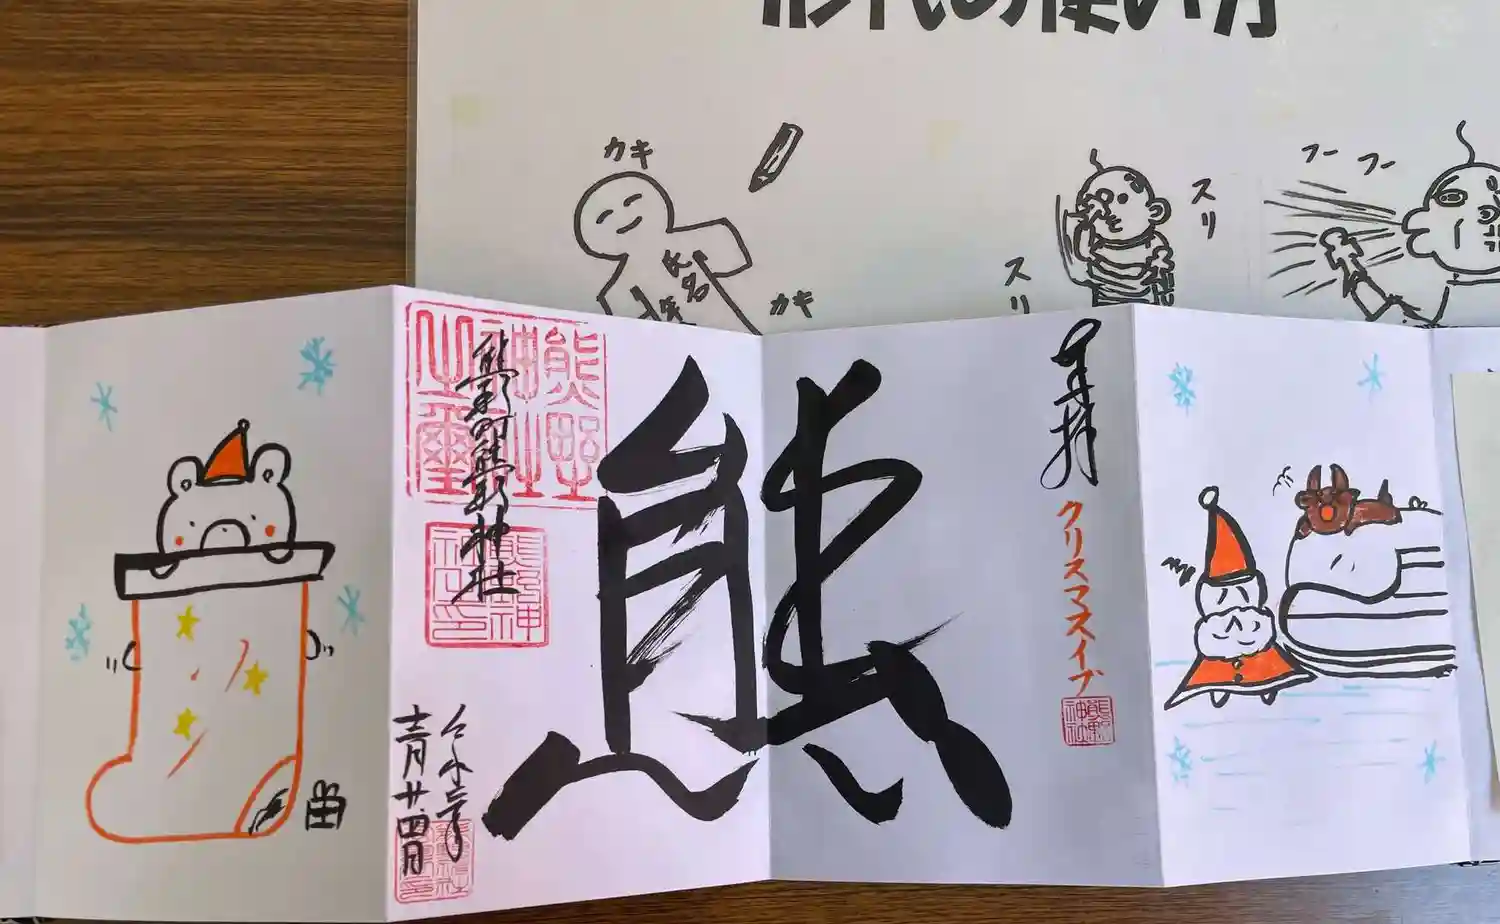 形代の使い方
カキ
氏名
カキ
スリ
スリ
フー
フー
奉拝
クリスマスイブ
熊
熊野町熊野神社
令和三年
十二月廿四日
熊野神社之璽
熊野神社之印
熊野神社